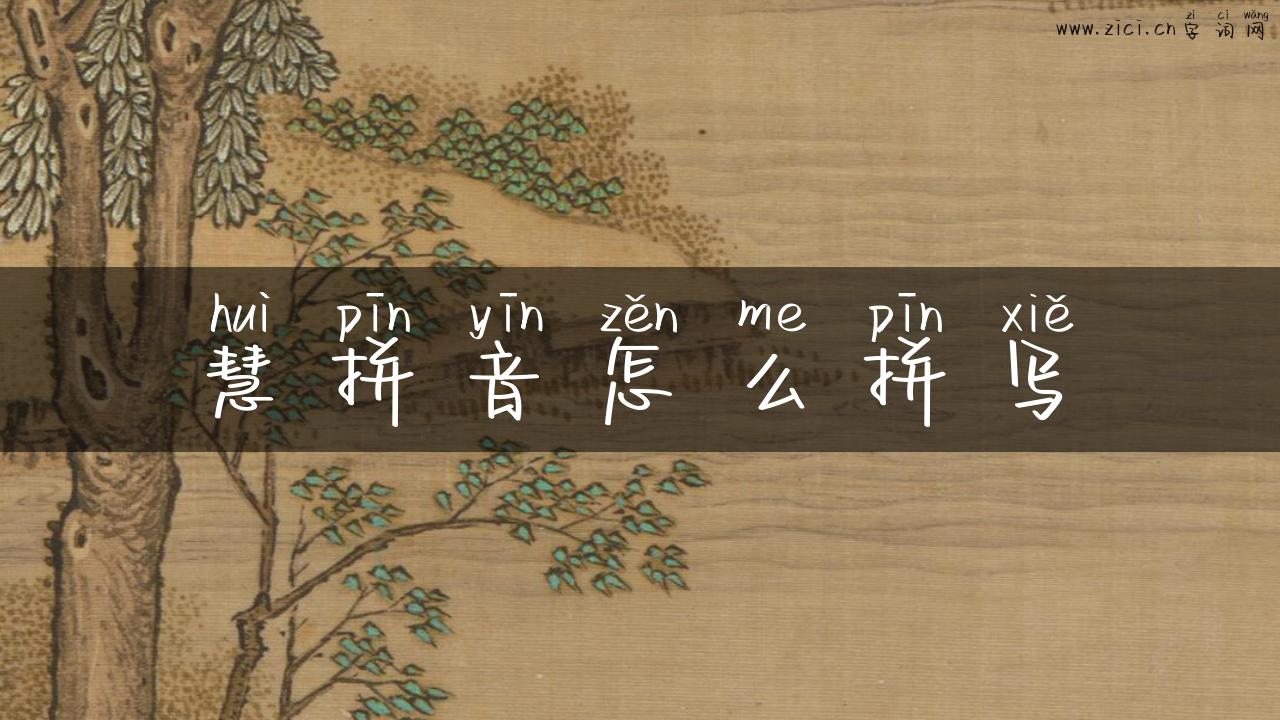 zì cí wǎng
www.zici.cn 字词网
huì pīn yīn zěn me pīn xiě
慧拼音怎么拼写